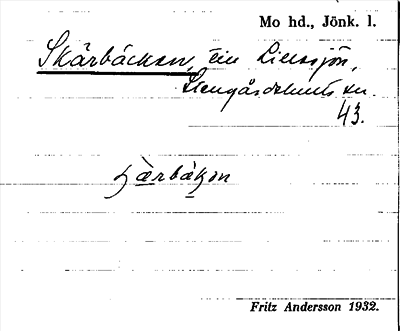 Mo hd., Jönk. l.
Skärbäcken, ein Liensjön,
Stengårdshults sn.
43.
ʂæ̀rbäkən
Fritz Andersson 1932.